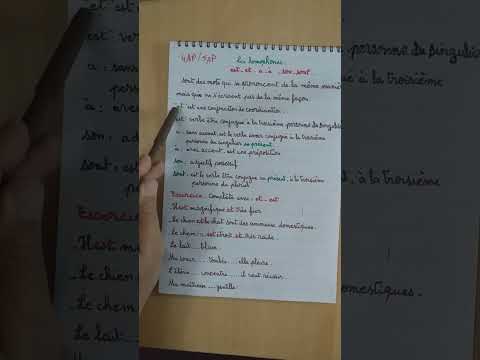 4AP/5AP Les homophones:
est - et - a - à - son - sont.
sont des mots qui se prononcent de la même manière
mais qui ne s'écrivent pas de la même façon.
et : est une conjonction de coordination.
est : verbe être conjugué à la troisième personne du singulier
a : sans accent, est le verbe avoir conjugué à la troisième
personne du singulier au présent.
à : avec accent, est une préposition
son : adjectif possessif
sont : est le verbe être conjugué au présent, à la troisième
personne du pluriel
Exercice : Complète avec : et - est
Il est magnifique et très fier
Le chien et le chat sont des animaux domestiques.
Le chemin est étroit et très raide.
Le lait .... blanc.
Ma sœur .... tombée .... elle pleure.
L'élève .... concentré .... il veut réussir
Ma maîtresse .... gentille